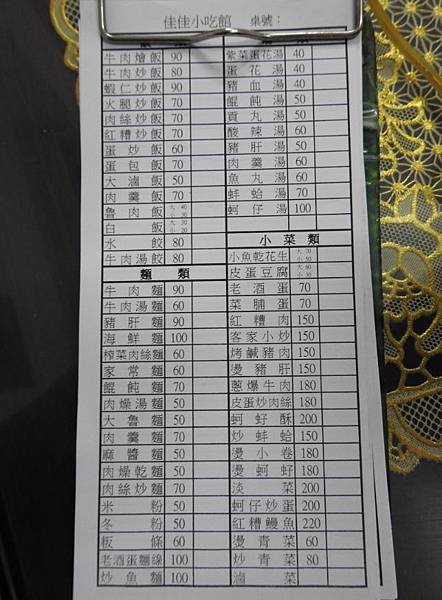 佳佳小吃館 桌號：
牛肉燴飯 90
牛肉炒飯 80
蝦仁炒飯 90
火腿炒飯 70
肉絲炒飯 70
紅糟炒飯 70
蛋炒飯 60
蛋包飯 70
大滷飯 50
肉羹飯 70
魯肉飯 大 40 小 30
白飯 大 小 20
水餃 80
牛肉湯餃 80
麵類
牛肉麵 90
牛肉湯麵 60
豬肝麵 90
海鮮麵 100
榨菜肉絲麵 60
家常麵 60
餛飩麵 70
肉燥湯麵 50
大魯麵 50
肉羹麵 70
麻醬麵 50
肉燥乾麵 50
肉絲炒麵 70
米粉 50
冬粉 50
粄條 60
老酒蛋麵線 100
炒魚麵 100
紫菜蛋花湯 40
蛋花湯 40
豬血湯 40
餛飩湯 50
貢丸湯 50
酸辣湯 60
豬肝湯 50
肉羹湯 60
魚丸湯 60
蛤蛤湯 70
蚵仔湯 100
小菜類
小魚乾花生 大 小
皮蛋豆腐 大 小
老酒蛋 70
菜脯蛋 70
紅糟肉 150
客家小炒 150
烤鹹豬肉 150
燙豬肝 150
蔥爆牛肉 180
皮蛋炒肉絲 180
蚵蚜酥 200
炒蚌蛤 150
燙小卷 180
燙蚵蚜 180
淡菜 200
蚵仔炒蛋 200
紅糟鰻魚 220
燙青菜 60
炒青菜 80
滷菜